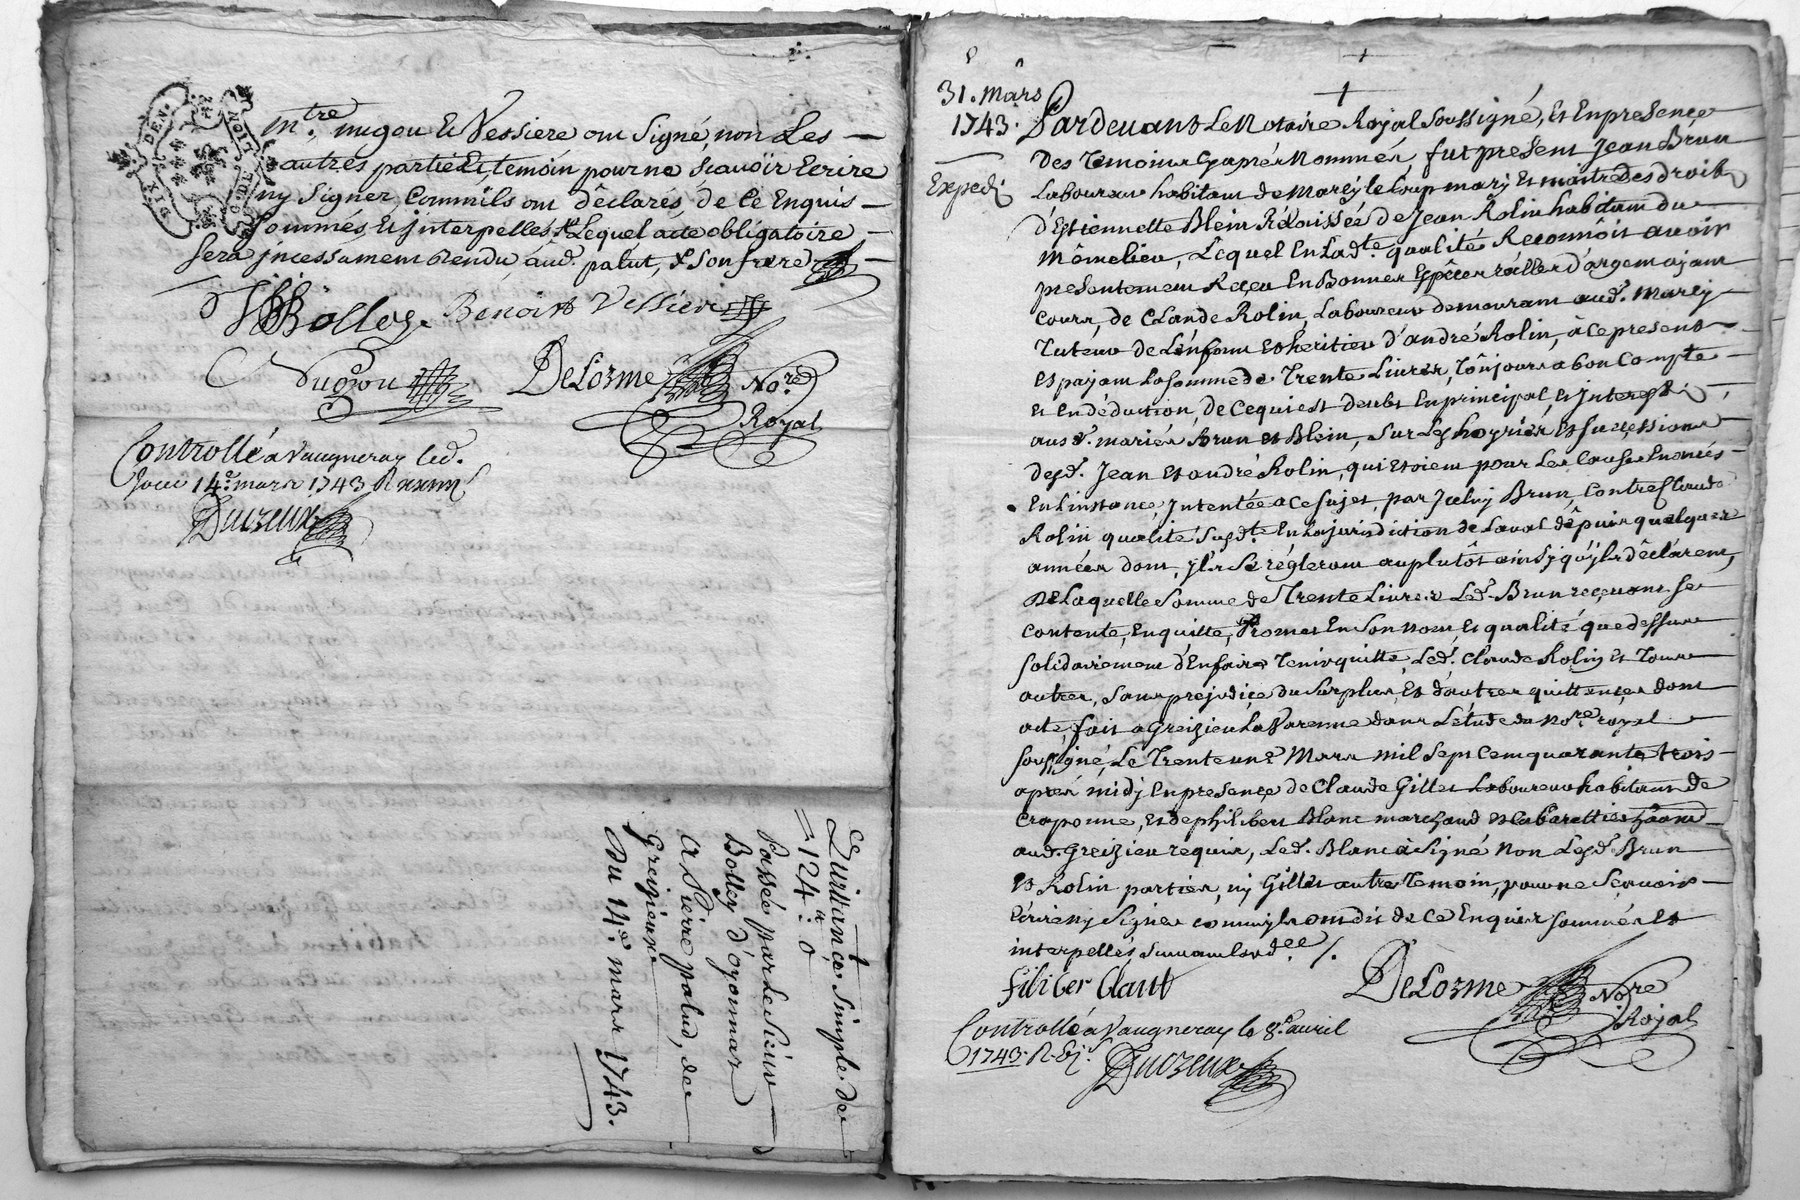 DIX DEN.
G. DE LION
Mtre. nugou Et Vessiere ont Signé, non Les
autres partie Et temoin pour ne scavoir Ecrire
ny Signer, Comm'ils ont déclarés de Ce Enquis
Sommés Et jnterpellés, Lequel acte obligatoire
sera jncessament Rendu, aud. palut, & son frere
Bolley Benoist Vessiere
Nugou DeLorme No.re
Royal
Controllé a Vaugneray led.
Jour 14e. mars 1743 R
Ducreux
Quittance Simple de
124ll. 0
Passée par Le Sieur
Bolley d'oyonnax
a Pierre palud, de
Greizieux
Du 14e. mars 1743.
31. Mars
1743.
Expedi
Pardevant Le Notaire Royal Soussigné, Et En presence
Des Temoins Cy aprés Nommés, fut present Jean Brun
Laboureur habitant de Marcy le Loup mary Et maitre des droits
d'Estiennette Blein Rélaissée de Jean Rolin habitant du
même lieu, Lequel En Lad.te qualité Reconnoit avoir
presentement Receu En Bonnes Espéces réalles d'argent ajant
cours, de Claude Rolin, Laboureur demeurant aud. Marcy
Tuteur de L'enfant Et heritier d'andré Rolin, à ce present
Et payant La somme de Trente Livres, Toûjours a bon Compte
Et En déduction, de Ce qui est deubt En principal Et jnterests,
aus d. mariés Brun Et Blein, sur Les hoyries Et successions
desd. Jean Et andré Rolin, qui Etoient pour Les Causes Enoncés
En L'instance, jntentée a ce sujet, par Brun, Contre Claude
Rolin qualité susd.te En La jurisdiction de Laval dépuis quelques
années dont, jls Se régleront au plutôt ainsy qu'jls déclarent,
De Laquelle Somme de Trente Livres Led. Brun reçevant se
contente, En quitte, Promet En Son nom Et qualité que dessus
solidairement d'En faire Tenir quitte, Led. Claude Rolin Et Tous
autres, Sans prejudice du Surplus, Et d'autres quittances dont
acte, fait a Greizieu La Varenne dans L'étude du No.re royal
soussigné, Le Trente un e Mars mil Sept Cent quarante trois
aprés midj En presence de Claude Gillet Laboureur habitant de
Craponne, Et de philibert Blanc marchand Et Cabarettier
aud. Greizieu requis, Led. Blanc à Signé Non Lesd. Brun
Et Rolin parties, ny Gillet autre Temoin, pour ne Sçavoir
Ecrire ny Signer comm'jls ont dit de Ce Enquis sommés Et
interpellés suivant Lord.ce /.
filiber Clant DeLorme No.re
Royal
Controllé a Vaugneray le 8e. avril
1743. R.
Ducreux